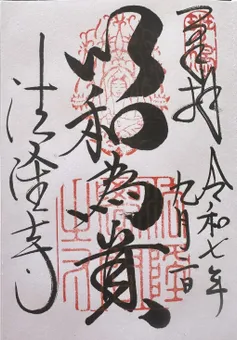 奉拝
令和七年
九月一日
以和為貴
法隆寺